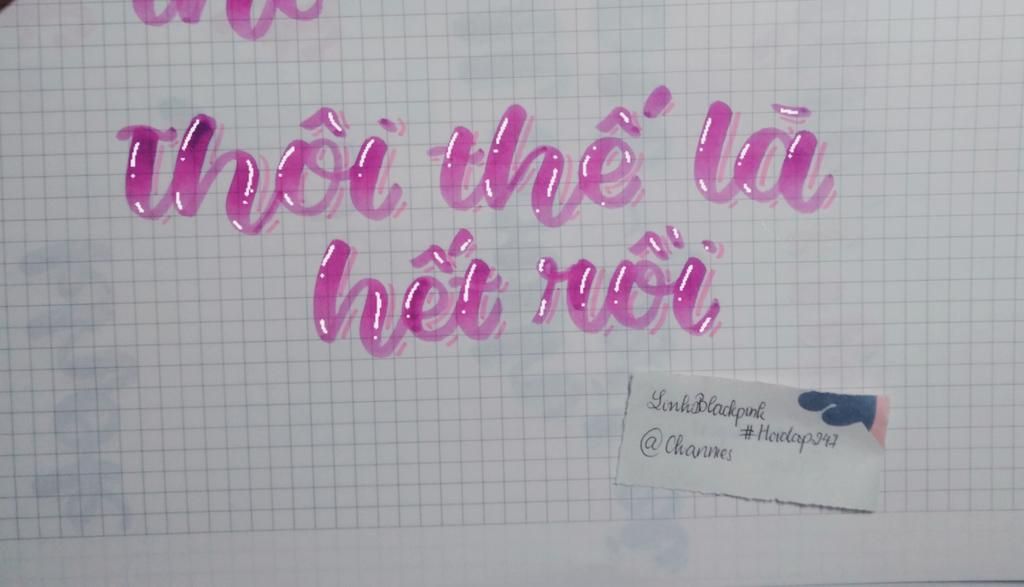 Thôi thế là
hết rồi
LinhBlackpink
#Hoidap247
@Channies